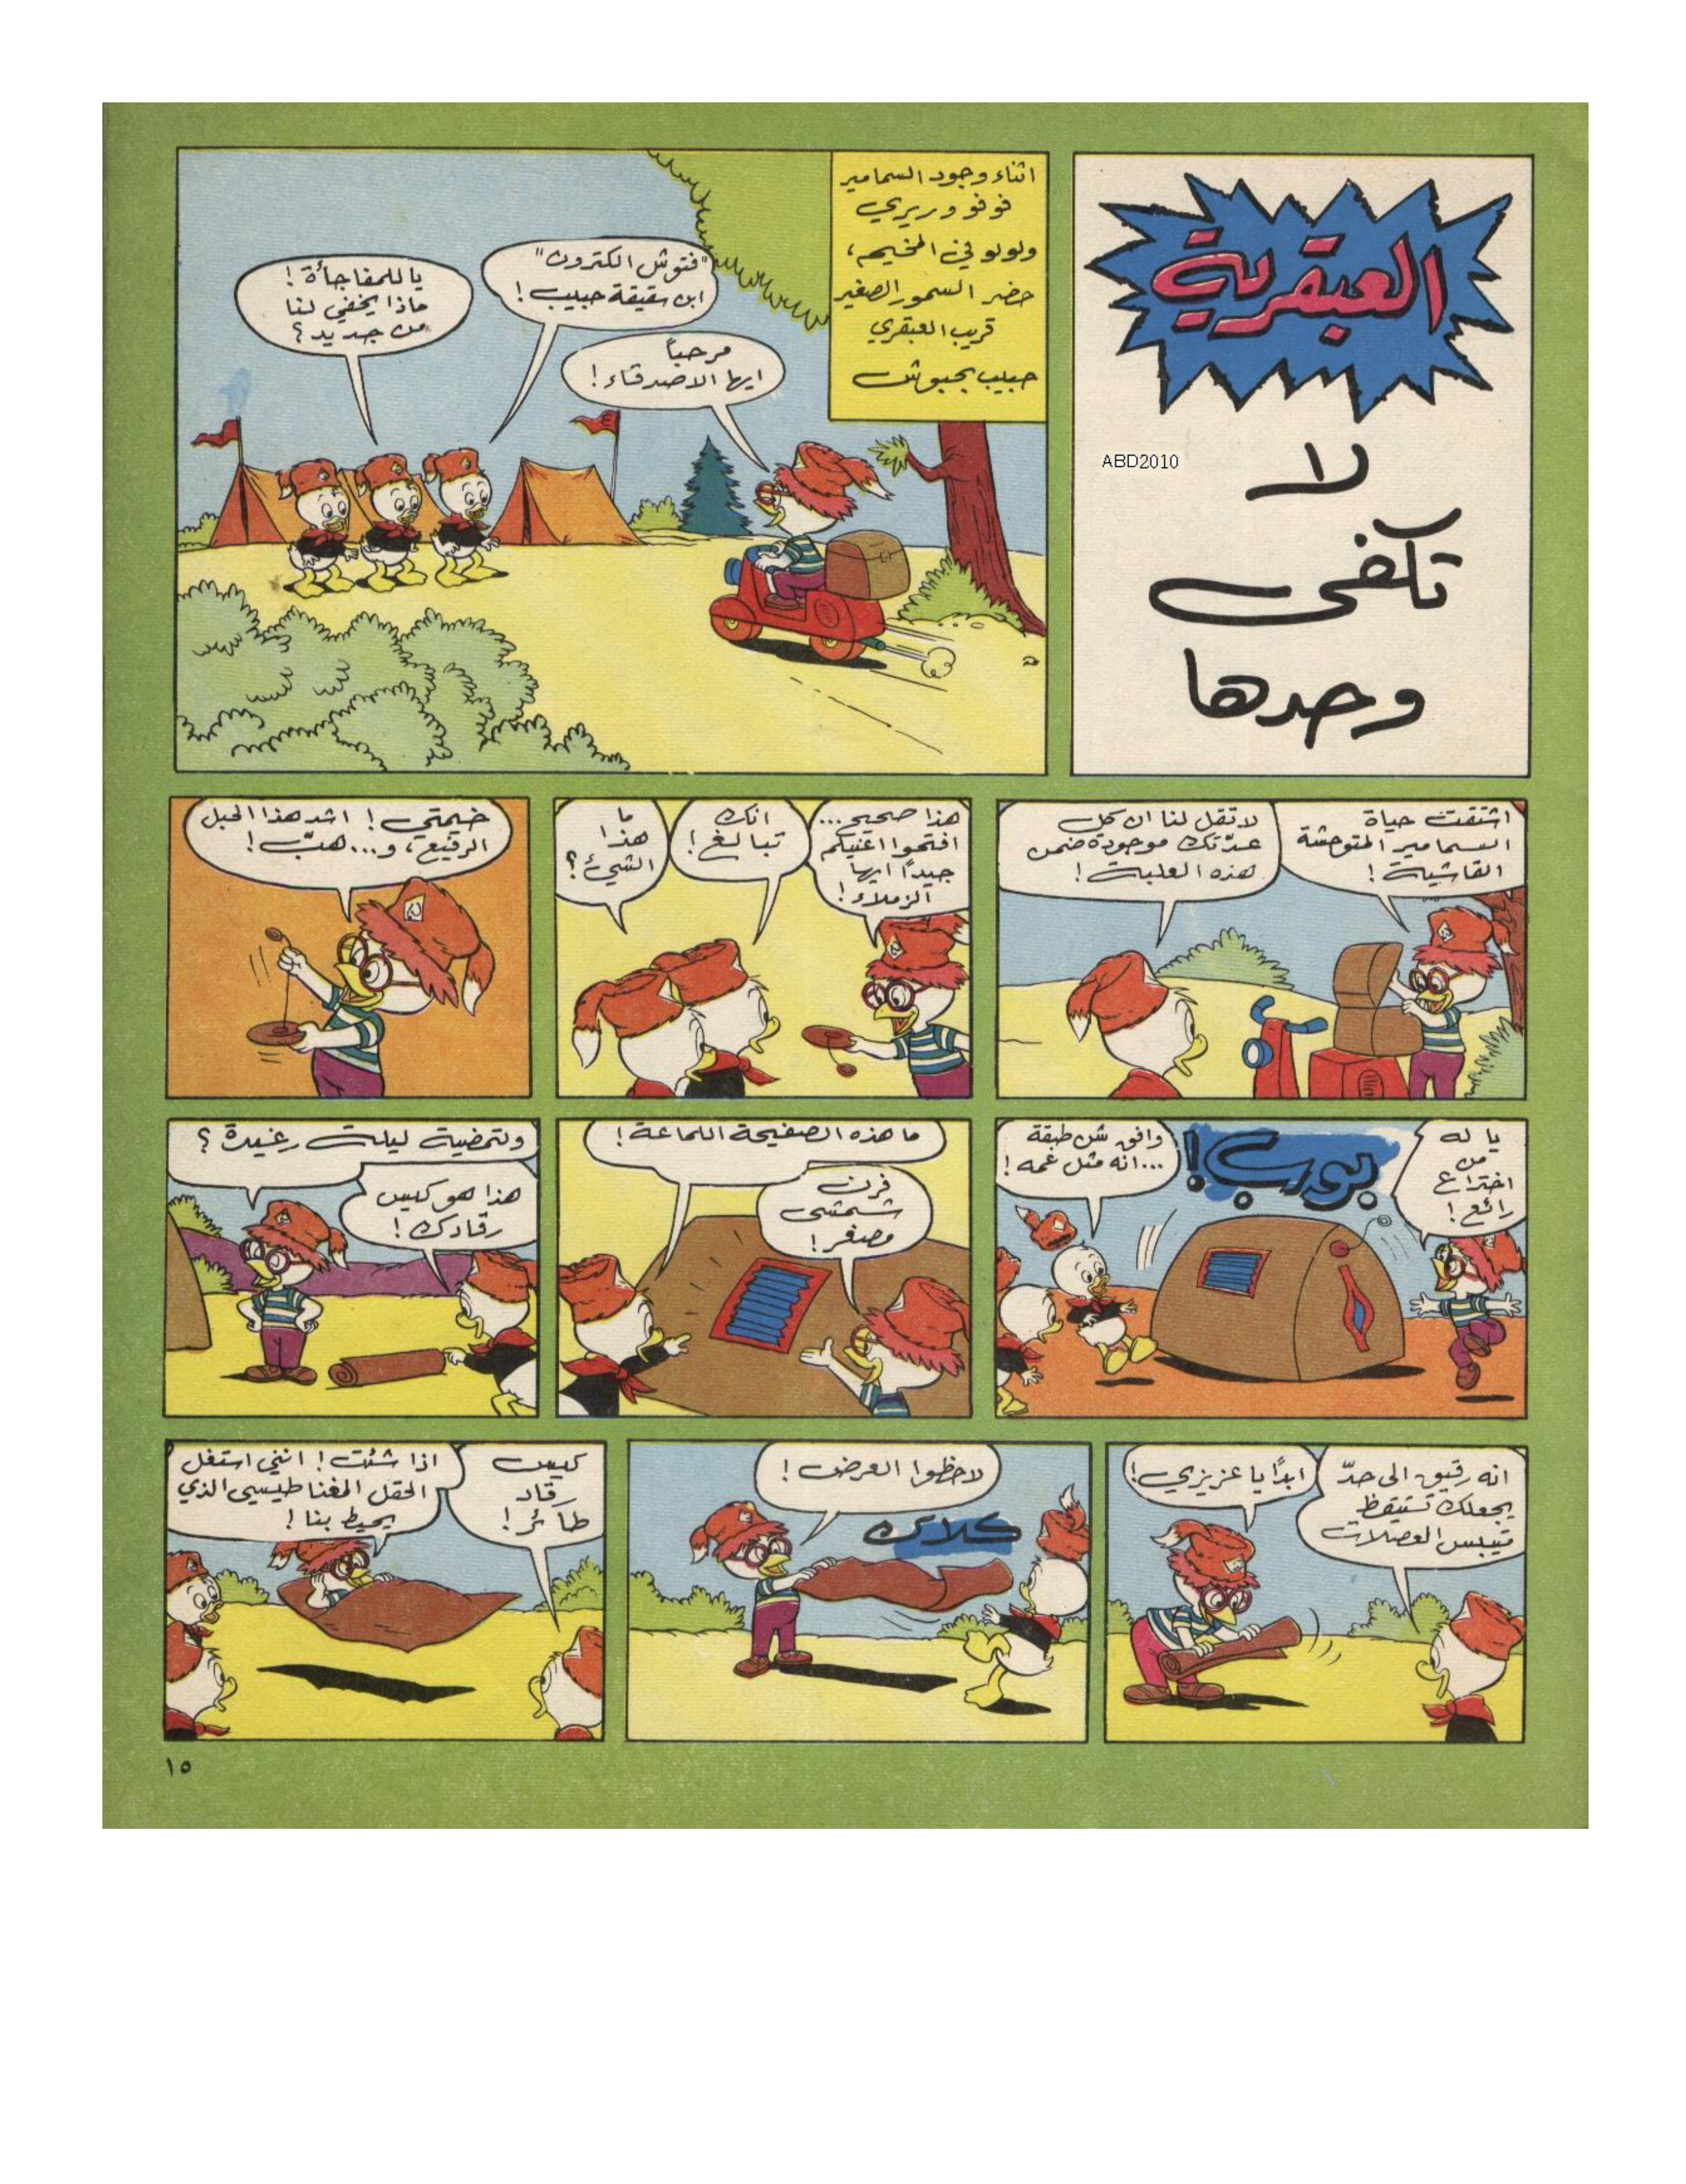 العبقرية
لا
تكفي
وحدها
ABD2010
اثناء وجود السمامير
فوفو وريري
ولولو في المخيم،
حضر السمور الصغير
قريب العبقري
حبيب بحبوش
مرحباً
ايها الاصدقاء!
"فتوش الكترون"
ابن شقيقة حبيب!
يا للمفاجأة!
ماذا يخفي لنا
من جديد؟
اشتقت حياة
السمامير المتوحشة
القاشية!
لا تقل لنا ان كل
عدّتك موجودة ضمن
هذه العلبة!
هذا صحيح...
افتحوا اعينكم
جيداً ايها
الزملاء!
انك
تبالغ!
ما
هذا
الشيئ؟
خيمتي! اشد هذا الحبل
الرفيع، و... هبّ!
يا له
من
اختراع
رائع!
بورب!
وافق شن طبقة
...انه مثل عمه!
ما هذه الصفيحة اللماعة!
فرن
شمسي
مصغر!
ولتمضية ليلة رغيدة؟
هذا هو كيس
رقادك!
انه رقيق الى حدّ
يجعلك تستيقظ
متيبس العضلات
ابداً يا عزيزي!
لاحظوا العرض!
كلاك
كيس
رقاد
طائر!
اذا شئت! انني استغل
الحقل المغناطيسي الذي
يحيط بنا!
١٥